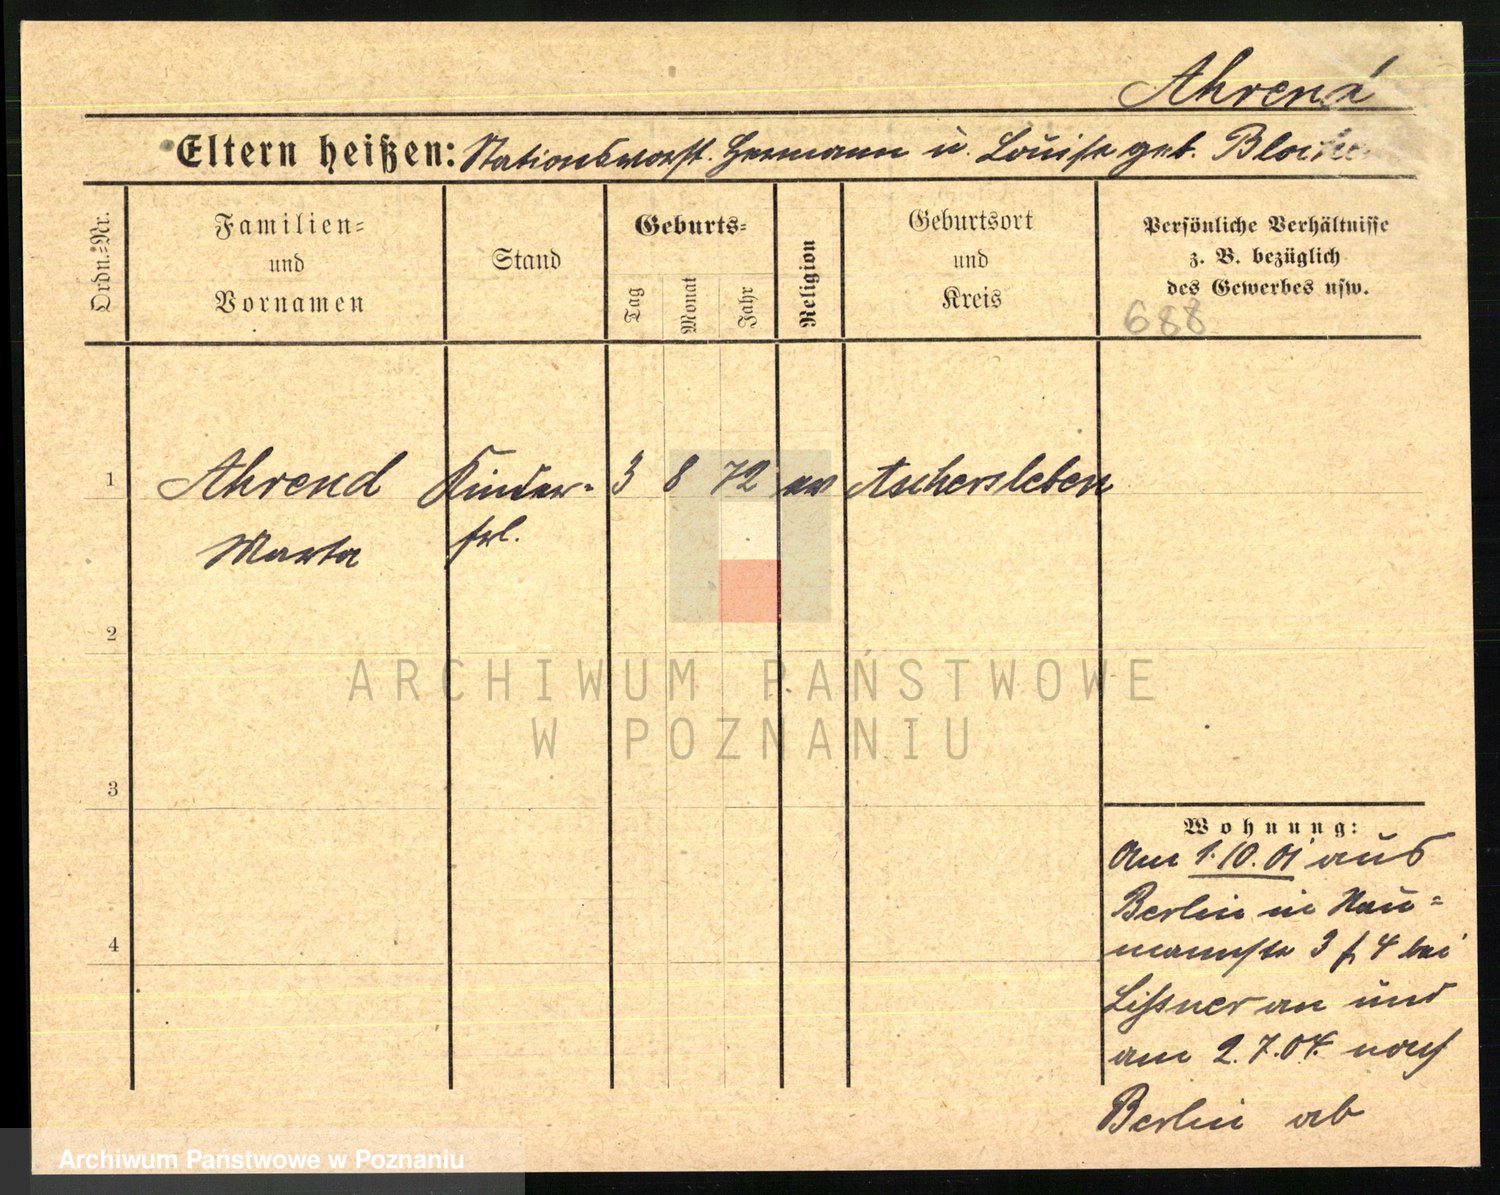 Ahrend
Eltern heißen: Stationsvorst. Hermann u. Louise geb.
Ordn.-Nr.
Familien-
und
Vornamen
Stand
Geburts-
Tag
Monat
Jahr
Religion
Geburtsort
und
Kreis
Persönliche Verhältnisse
z. B. bezüglich
des Gewerbes usw.
688
1 Ahrend Kinder- 3 8 72 ev Aschersleben
Marta frl.
2
3
4
ARCHIWUM PAŃSTWOWE
W POZNANIU
Wohnung:
Am 1.10.01 aus
Berlin in Nau-
mannstr 3 f 4 bei
Lissner an und
am 2.7.04. nach
Berlin ab
Archiwum Państwowe w Poznaniu